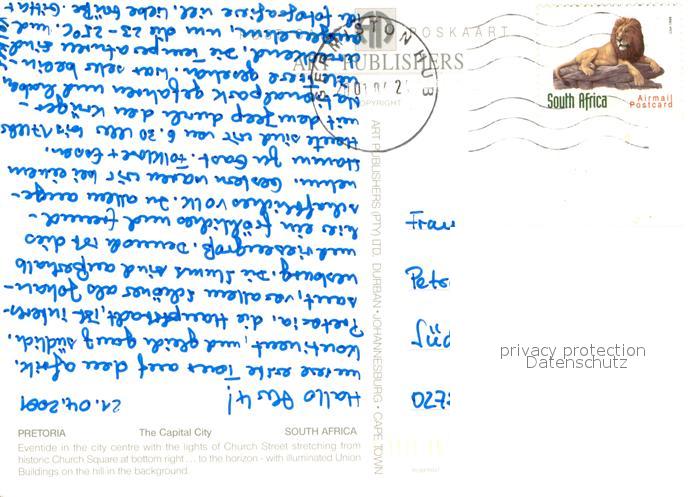 21.04.2001
Hallo Ihr 4!
unsere erste Tour auf dem afrik.
Kontinent, und gleich ganz südlich.
Pretoria, die Hauptstadt, ist interes-
sant, vor allem schöner als Johan-
nesburg. Die Slums sind außerhalb
und riesengroß. Dennoch ist dies
hier ein fröhliches und freund-
schaftliches Volk. Zu allem ange-
nehm. Gestern waren wir bei einem
Stamm zu Gast. Folklore + Essen.
Heute sind wir von 6.30 Uhr bis 17 Uhr
mit dem Jeep durch den Krüger-
Nationalpark gefahren und haben
viele Tiere gesehen. War sehr beein-
druckend. Die Temperaturen sind
angenehm, um die 23-25°C. und
fotografiere viel. Liebe Grüße. Gitta+
POSKAART
ART PUBLISHERS
COPYRIGHT
GERMISTON HUB
ART PUBLISHERS (PTY) LTD. DURBAN • JOHANNESBURG • CAPE TOWN
South Africa
Airmail
Postcard
Frau
Pete
Süd
027
privacy protection
Datenschutz
PRETORIA The Capital City SOUTH AFRICA
Eventide in the city centre with the lights of Church Street stretching from
historic Church Square at bottom right ... to the horizon - with illuminated Union
Buildings on the hill in the background.